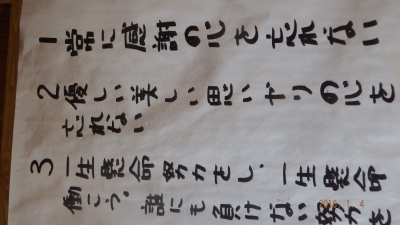 1 常に感謝の心を忘れない
2 優しい美しい思いヤリの心を
忘れない
3 一生懸命努力をし、一生懸命
働こう。誰にも負けない努力を